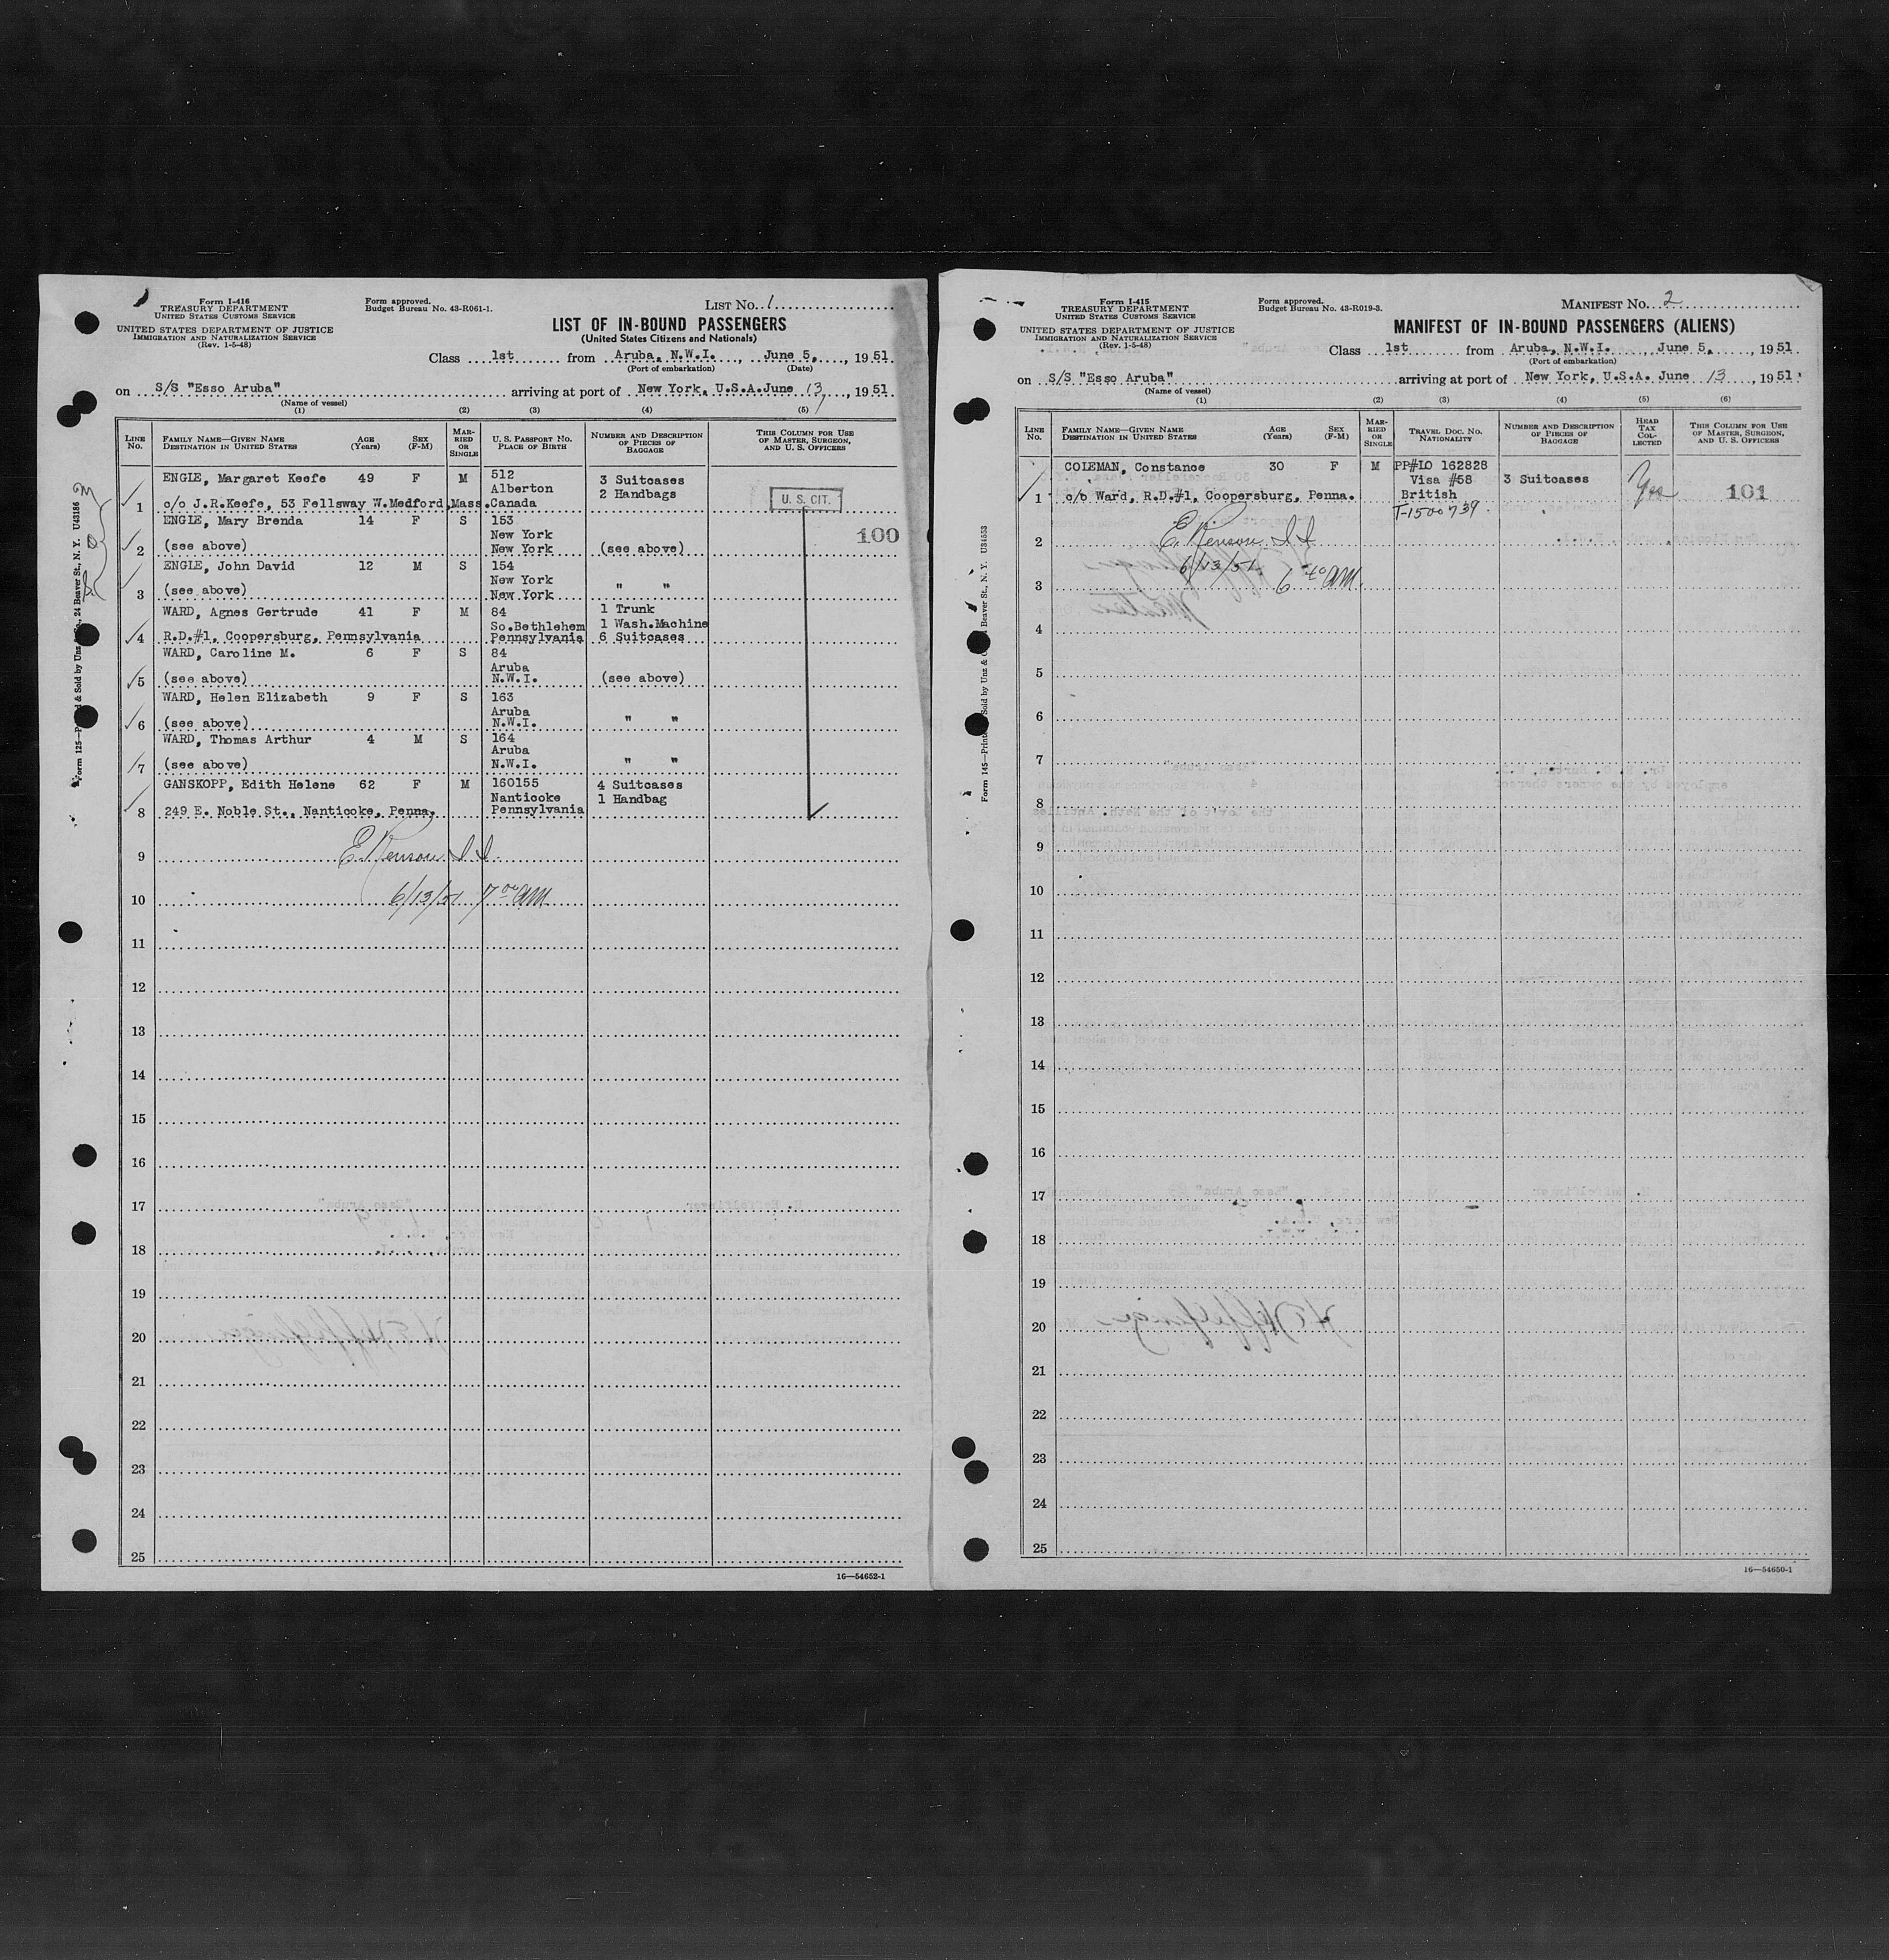 Form I-416
TREASURY DEPARTMENT
UNITED STATES CUSTOMS SERVICE
UNITED STATES DEPARTMENT OF JUSTICE
IMMIGRATION AND NATURALIZATION SERVICE
(Rev. 1-5-48)
Form approved.
Budget Bureau No. 43-R061-1.
LIST No. 1
LIST OF IN-BOUND PASSENGERS
(United States Citizens and Nationals)
Class 1st from Aruba, N.W.I., June 5, 1951
(Port of embarkation) (Date)
on S/S "Esso Aruba" arriving at port of New York, U.S.A. June 13, 1951
(Name of vessel)
(1) (2) (3) (4) (5)
LINE No. FAMILY NAME—GIVEN NAME DESTINATION IN UNITED STATES AGE (Years) SEX (F-M) MARRIED OR SINGLE U. S. PASSPORT NO. PLACE OF BIRTH NUMBER AND DESCRIPTION OF PIECES OF BAGGAGE THIS COLUMN FOR USE OF MASTER, SURGEON, AND U. S. OFFICERS
ENGLE, Margaret Keefe 49 F M 512 3 Suitcases
Alberton 2 Handbags
1 c/o J.R.Keefe, 53 Fellsway W.Medford,Mass. Canada U. S. CIT.
ENGLE, Mary Brenda 14 F S 153
New York 100
2 (see above) New York (see above)
ENGLE, John David 12 M S 154
New York
3 (see above) New York " "
WARD, Agnes Gertrude 41 F M 84 1 Trunk
So.Bethlehem 1 Wash.Machine
4 R.D.#1, Coopersburg, Pennsylvania Pennsylvania 6 Suitcases
WARD, Caroline M. 6 F S 84
Aruba
5 (see above) N.W.I. (see above)
WARD, Helen Elizabeth 9 F S 163
Aruba
6 (see above) N.W.I. " "
WARD, Thomas Arthur 4 M S 164
Aruba
7 (see above) N.W.I. " "
GANSKOPP, Edith Helene 62 F M 160155 4 Suitcases
Nanticoke 1 Handbag
8 249 E. Noble St., Nanticoke, Penna. Pennsylvania
9 E. Renson I I
10 6/13/51 7 00 AM
11
12
13
14
15
16
17
18
19
20
21
22
23
24
25
16—54652-1
24 Beaver St., N. Y. U43186
Form I-415
TREASURY DEPARTMENT
UNITED STATES CUSTOMS SERVICE
UNITED STATES DEPARTMENT OF JUSTICE
IMMIGRATION AND NATURALIZATION SERVICE
(Rev. 1-5-48)
Form approved.
Budget Bureau No. 43-R019-3.
MANIFEST No. 2
MANIFEST OF IN-BOUND PASSENGERS (ALIENS)
Class 1st from Aruba, N.W.I., June 5, 1951
(Port of embarkation) (Date)
on S/S "Esso Aruba" arriving at port of New York, U.S.A. June 13, 1951
(Name of vessel)
(1) (2) (3) (4) (5) (6)
LINE No. FAMILY NAME—GIVEN NAME DESTINATION IN UNITED STATES AGE (Years) SEX (F-M) MARRIED OR SINGLE TRAVEL DOC. NO. NATIONALITY NUMBER AND DESCRIPTION OF PIECES OF BAGGAGE HEAD TAX COLLECTED THIS COLUMN FOR USE OF MASTER, SURGEON, AND U. S. OFFICERS
COLEMAN, Constance 30 F M PP#LO 162828
Visa #58 3 Suitcases Yes
1 c/o Ward, R.D.#1, Coopersburg, Penna. British 101
T-1500739
2 E. Renson I I
3 6/13/51 6 40 AM.
4
5
6
7
8
9
10
11
12
13
14
15
16
17
18
19
20
21
22
23
24
25
16—54650-1
Beaver St., N. Y. U34553